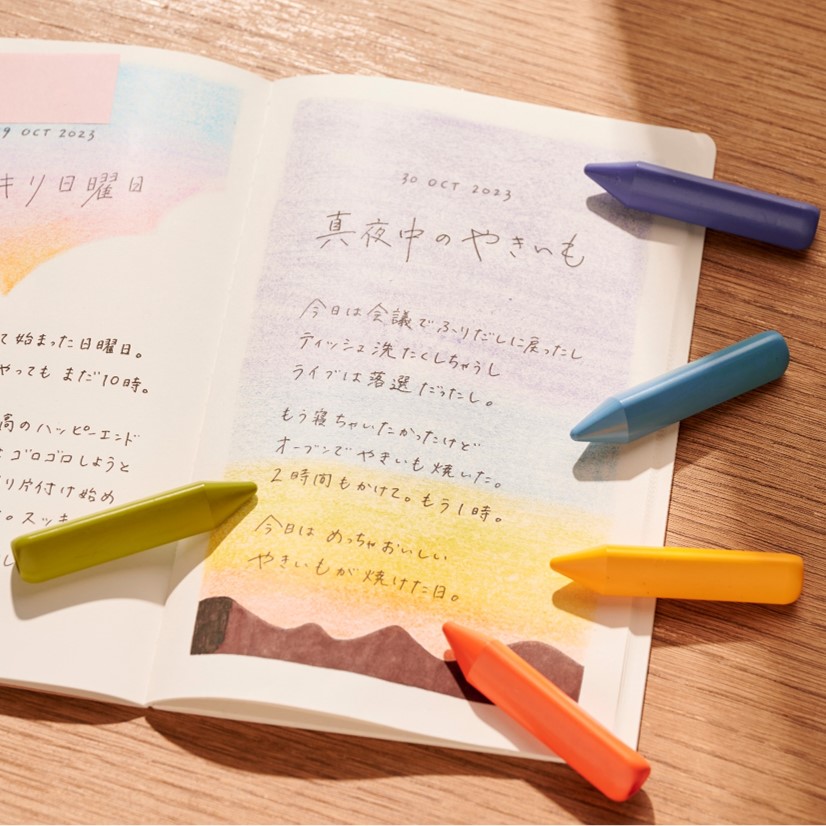 9 OCT 2023
キリ日曜日
て始まった日曜日。
やってもまだ10時。
高のハッピーエンド
ゴロゴロしようと
り片付け始め
。スッキ
30 OCT 2023
真夜中のやきいも
今日は会議でふりだしに戻ったし
ティッシュ洗たくしちゃうし
ライブは落選だったし。
もう寝ちゃいたかったけど
オーブンでやきいも焼いた。
2時間もかけて。もう1時。
今日はめっちゃおいしい
やきいもが焼けた日。